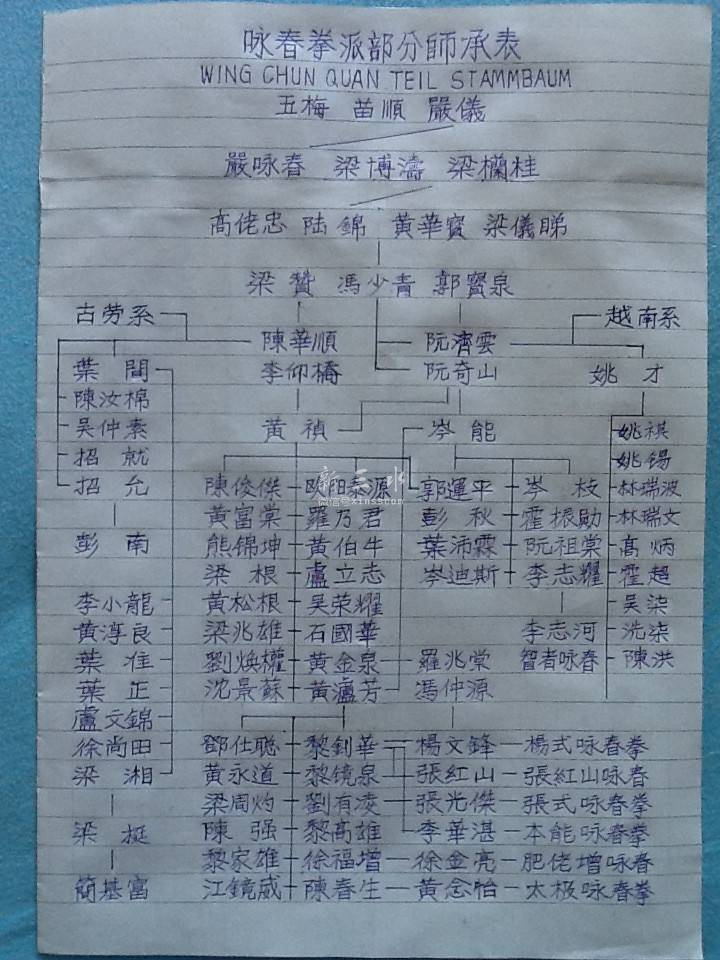 咏春拳派部分師承表
WING CHUN QUAN TEIL STAMMBAUM
五梅 苗順 嚴儀
嚴咏春 梁博濤 梁欄桂
高佬忠 陆錦 黃華寳 梁儀睇
梁贊 馮少青 郭寳泉
古劳系 越南系
陳華順 阮濟雲
葉問 李仰橋 阮奇山 姚才
陳汝棉
吴仲素 黃禎 岑能 姚祺
招就 姚锡
招允 陳俊傑 欧阳泰源 郭運平 岑枝 林瑞波
黃富棠 羅乃君 彭秋 霍振勋 林瑞文
彭南 熊錦坤 黃伯牛 葉沛霖 阮祖棠 高炳
梁根 盧立志 岑迪斯 李志耀 霍超
李小龍 黃松根 吴荣耀 吴柒
黃淳良 梁兆雄 石國華 李志河 洗柒
葉准 劉焕權 黃金泉 羅兆棠 智者咏春 陳洪
葉正 沈景蘇 黃瀘芳 馮仲源
盧文錦
徐尚田 鄧仕聪 黎釗華 楊文鋒 楊式咏春拳
梁湘 黃永道 黎镜泉 張紅山 張紅山咏春
梁周灼 劉有凌 張光傑 張式咏春拳
梁挺 陳强 黎高雄 李華湛 本能咏春拳
黎家雄 徐福增 徐金亮 肥佬增咏春
簡基富 江鏡威 陳春生 黃念怡 太极咏春拳
新三水
微信号xinss.com